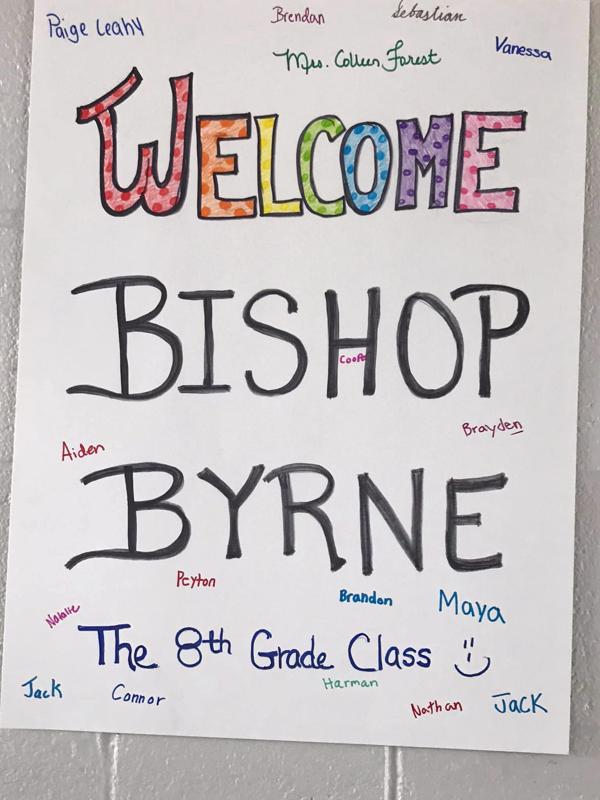 Paige Leahy
Brendan
Sebastian
Mrs. Colleen Forest
Vanessa
WELCOME
BISHOP
Cooper
Brayden
Aiden
BYRNE
Peyton
Brandon
Maya
Natalie
The 8th Grade Class
Harman
Jack
Connor
Nathan
JACK